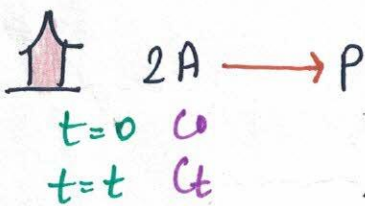 2A → P
t=0 C0
t=t Ct